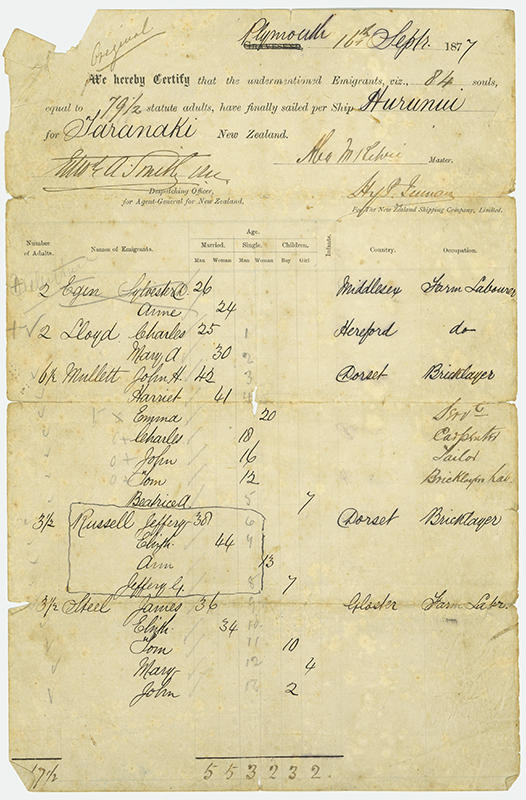 Original
Plymouth
Gravesend 10th Septr. 1877
We hereby Certify that the undermentioned Emigrants, viz., 84 souls,
equal to 79 1/2 statute adults, have finally sailed per Ship Hurunui
for Taranaki New Zealand.
Master.
Despatching Officer,
for Agent-General for New Zealand.
For The New Zealand Shipping Company, Limited.
Number of Adults. Names of Emigrants. Age. Married. Man Woman Single. Man Woman Children. Boy Girl Infants. Country. Occupation.
2 Egen Sylvester D. 26 Middlesex Farm Labourer
Anne 24
2 Lloyd Charles 25 1 Hereford do
Mary A 30 2
6 1/2 Mullett John H. 42 3 Dorset Bricklayer
Harriet 41 4
Emma 20 Servt
Charles 18 Carpenter
John 16 Tailor
Tom 12 Bricklayers Lab.
Beatrice A 5 7
3 1/2 Russell Jeffery 38 6 Dorset Bricklayer
Elizth. 44
Ann 13
Jeffery G. 8 7
3 1/2 Steel James 36 9 Gloster Farm Labr.
Elizth 34 10
Tom 11 10
Mary 12 4
John 2
17 1/2 5 5 3 2 3 2.